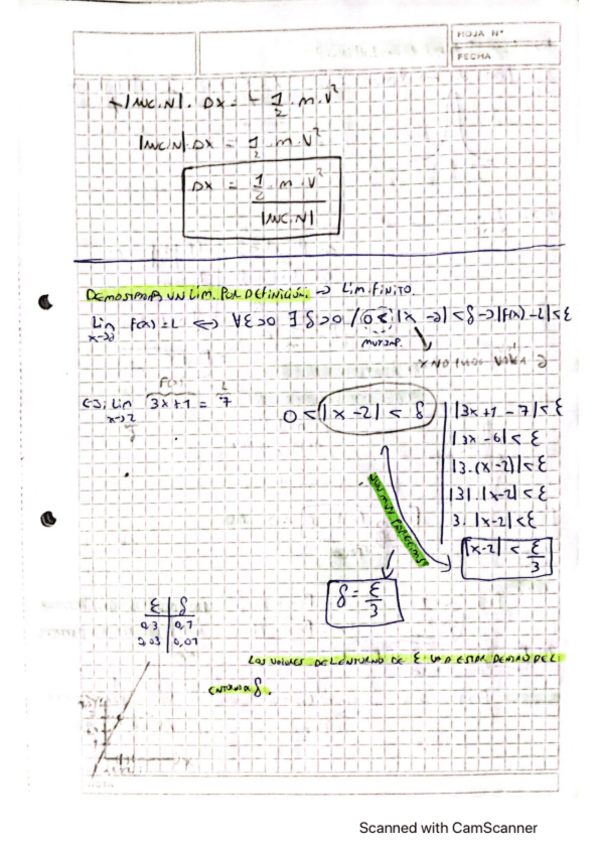 HOJA N°
FECHA
+|μc.N|. DX = - 1/2 . m.v²
|μc.N|.DX = 1/2 .m.v²
DX = 1/2 . m.v² / |μc.N|
DEMOSTRAR UN Lim. POR DEFINICIÓN. → Lim. FINITO.
Lim x→a F(x) = L ⟺ ∀ε>0 ∃ δ>0 / 0<|x-a|<δ → |F(x)-L|<ε
F(x) L
EJ: Lim x→2 3x+1 = 7
0<|x-2|<δ
|3x+1-7|<ε
|3x-6|<ε
|3.(x-2)|<ε
|3|.|x-2|<ε
3.|x-2|<ε
|x-2|<ε/3
SON MUY PARECIDAS
δ = ε/3
ε | δ
0,3 | 0,1
0,03 | 0,01
LOS VALORES DEL ENTORNO DE ε VAN A ESTAR DENTRO DEL
ENTORNO δ.
Scanned with CamScanner